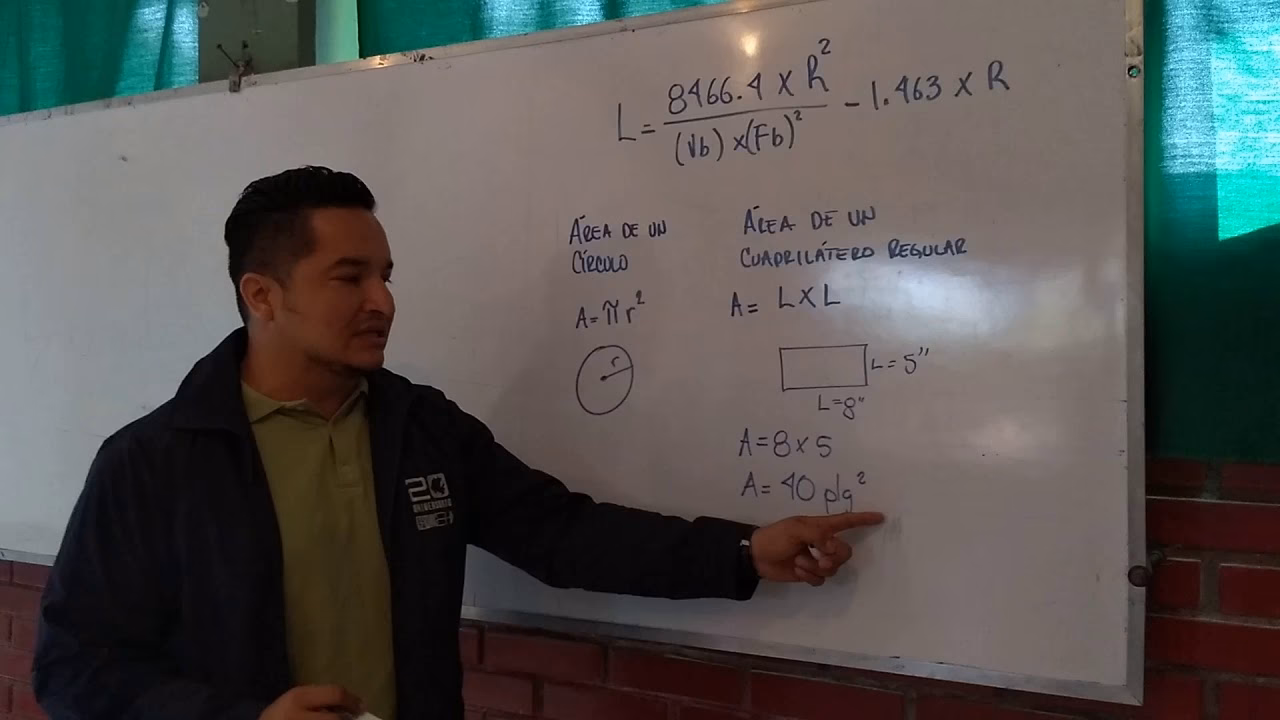 L = 8466.4 X R² / (Vb) x (Fb)² - 1.463 X R
ÁREA DE UN
CÍRCULO
A = π r²
r
ÁREA DE UN
CUADRILÁTERO REGULAR
A = L X L
L = 5"
L = 8"
A = 8 x 5
A = 40 plg²
20